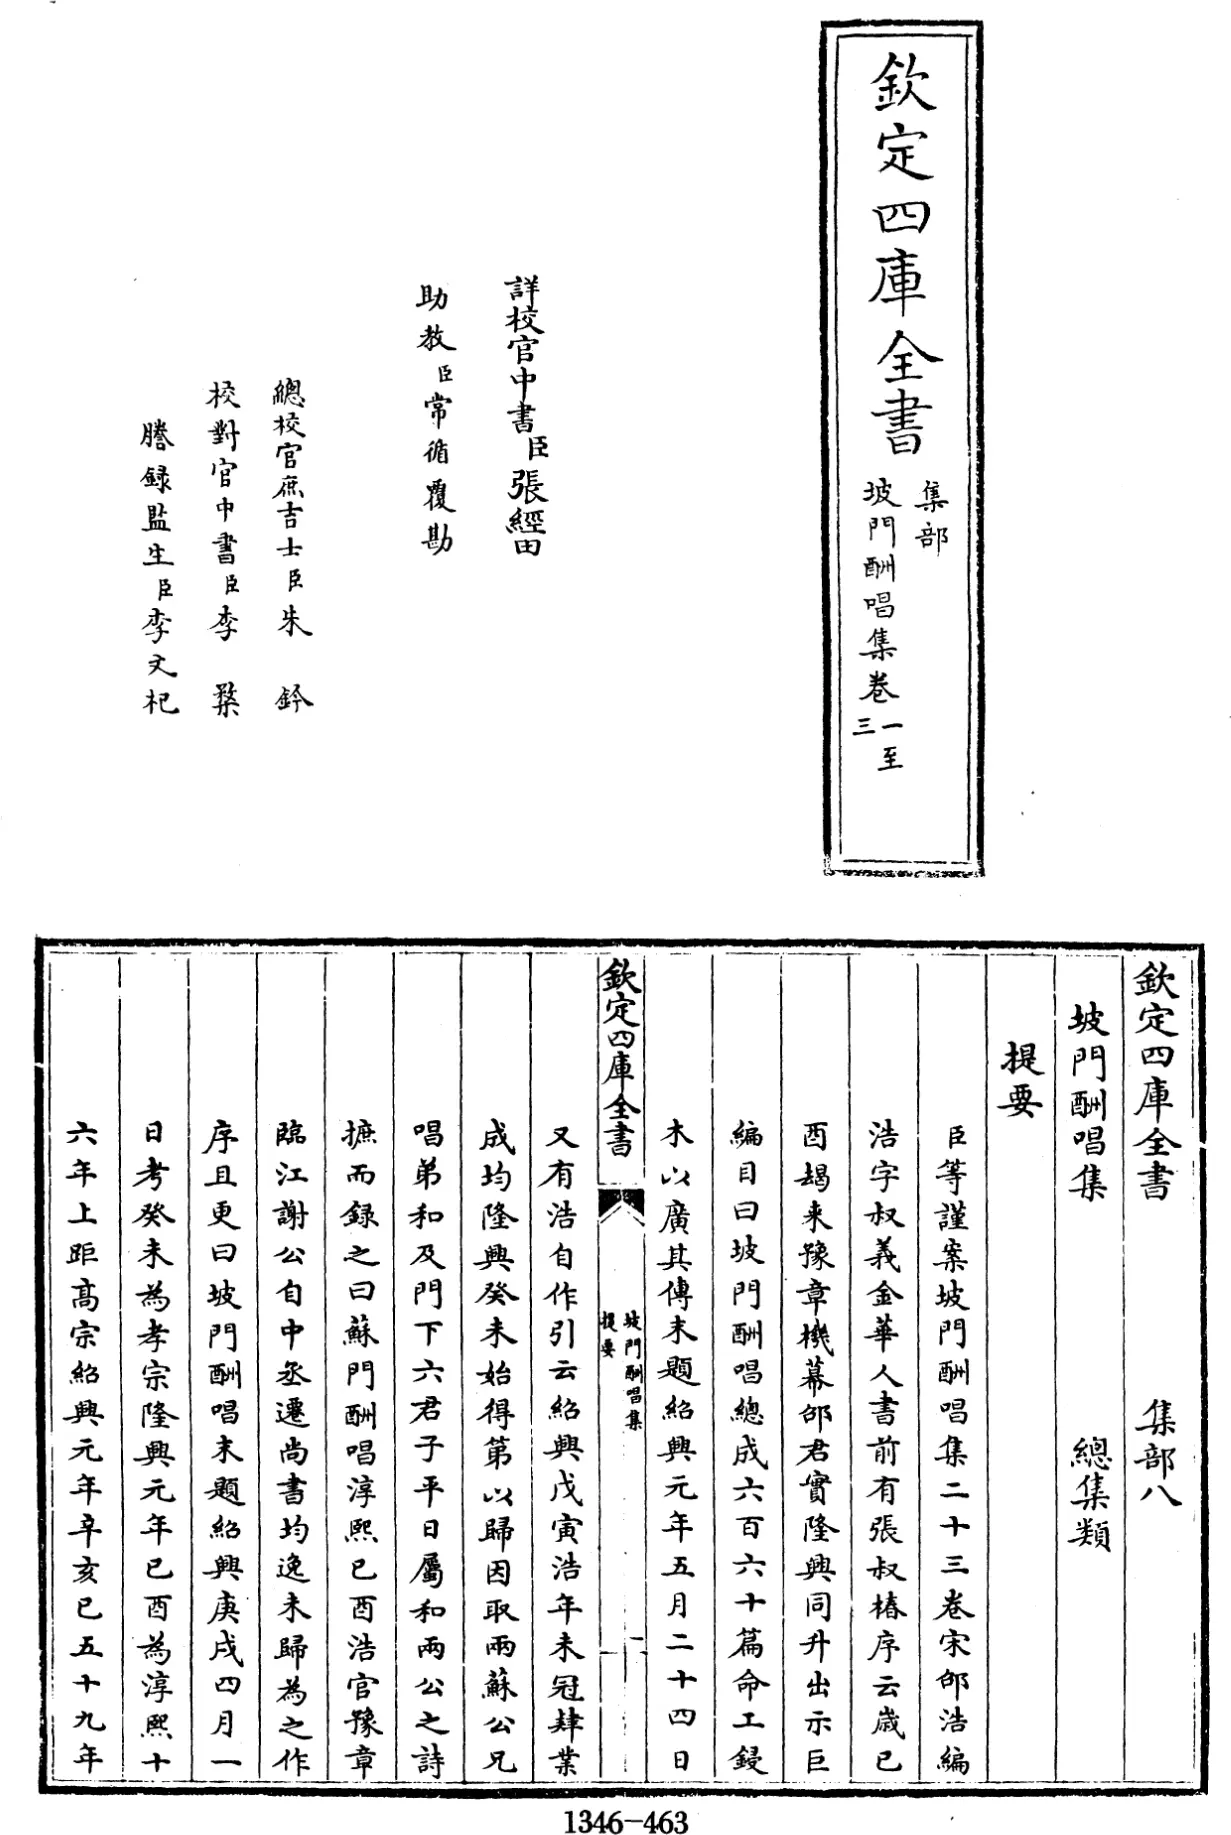 欽定四庫全書
集部
坡門酬唱集卷一至三
詳校官中書臣張經田
助教臣常循覆勘
總校官庶吉士臣朱鈐
校對官中書臣李䊵
謄録監生臣李文杞
欽定四庫全書 集部八
坡門酬唱集 總集類
提要
臣等謹案坡門酬唱集二十三卷宋邵浩編
浩字叔義金華人書前有張叔椿序云歲己
酉朅来豫章機幕邵君實隆興同升出示巨
編目曰坡門酬唱總成六百六十篇命工鋟
木以廣其傳末題紹興元年五月二十四日
欽定四庫全書
坡門酬唱集
提要
一
又有浩自作引云紹興戊寅浩年未冠肄業
成均隆興癸未始得第以歸因取兩蘇公兄
唱弟和及門下六君子平日屬和兩公之詩
摭而録之曰蘇門酬唱淳熙己酉浩官豫章
臨江謝公自中丞遷尚書均逸未歸為之作
序且更曰坡門酬唱末題紹興庚戌四月一
日考癸未為孝宗隆興元年己酉為淳熙十
六年上距高宗紹興元年辛亥已五十九年
1346-463